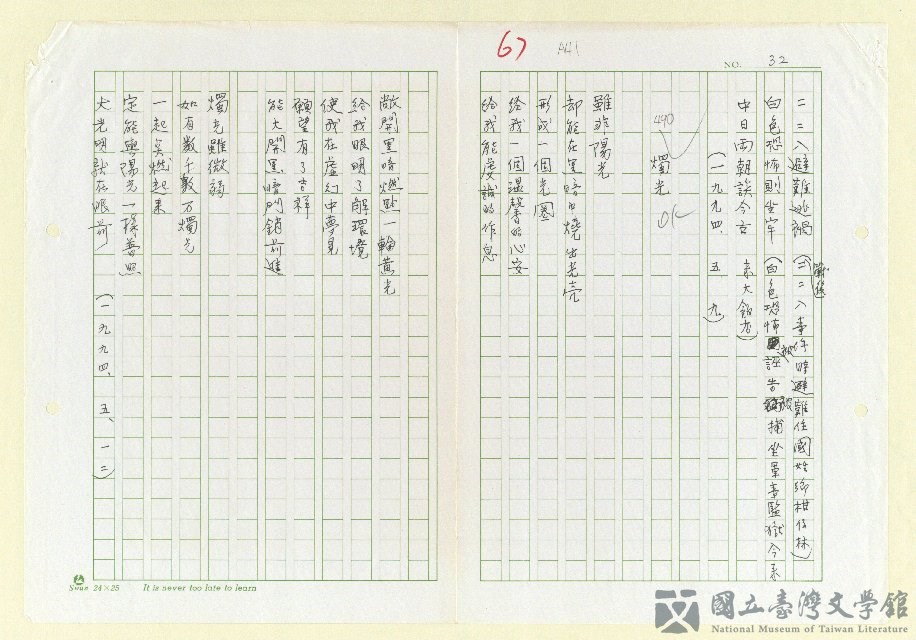 67
A41
NO. 32
二二八避難逃禍(二二八事件時避難住國姓鄉柑仔林)
戰後
白色恐怖則坐牢(白色恐怖被誣告被捕坐軍事監獄今來
中日兩朝談今古 來大飯店)
(一九九四、五、九)
490
燭光
OK
雖非陽光
却能在黑暗中燒出光亮
形成一個光圈
給我一個溫馨的心安
給我能虔誠的作息
敞開黑暗燃點一輪黃光
給我眼明了解環境
使我在虛幻中夢見
願望有了吉祥
能大開黑暗門銷前進
燭光雖微弱
如有數千數万燭光
一起矣燃起來
定能與陽光一樣普照
大光明就在眼前 (一九九四、五、一二)
Swan 24×25 It is never too late to learn
國立臺灣文學館
National Museum of Taiwan Literature